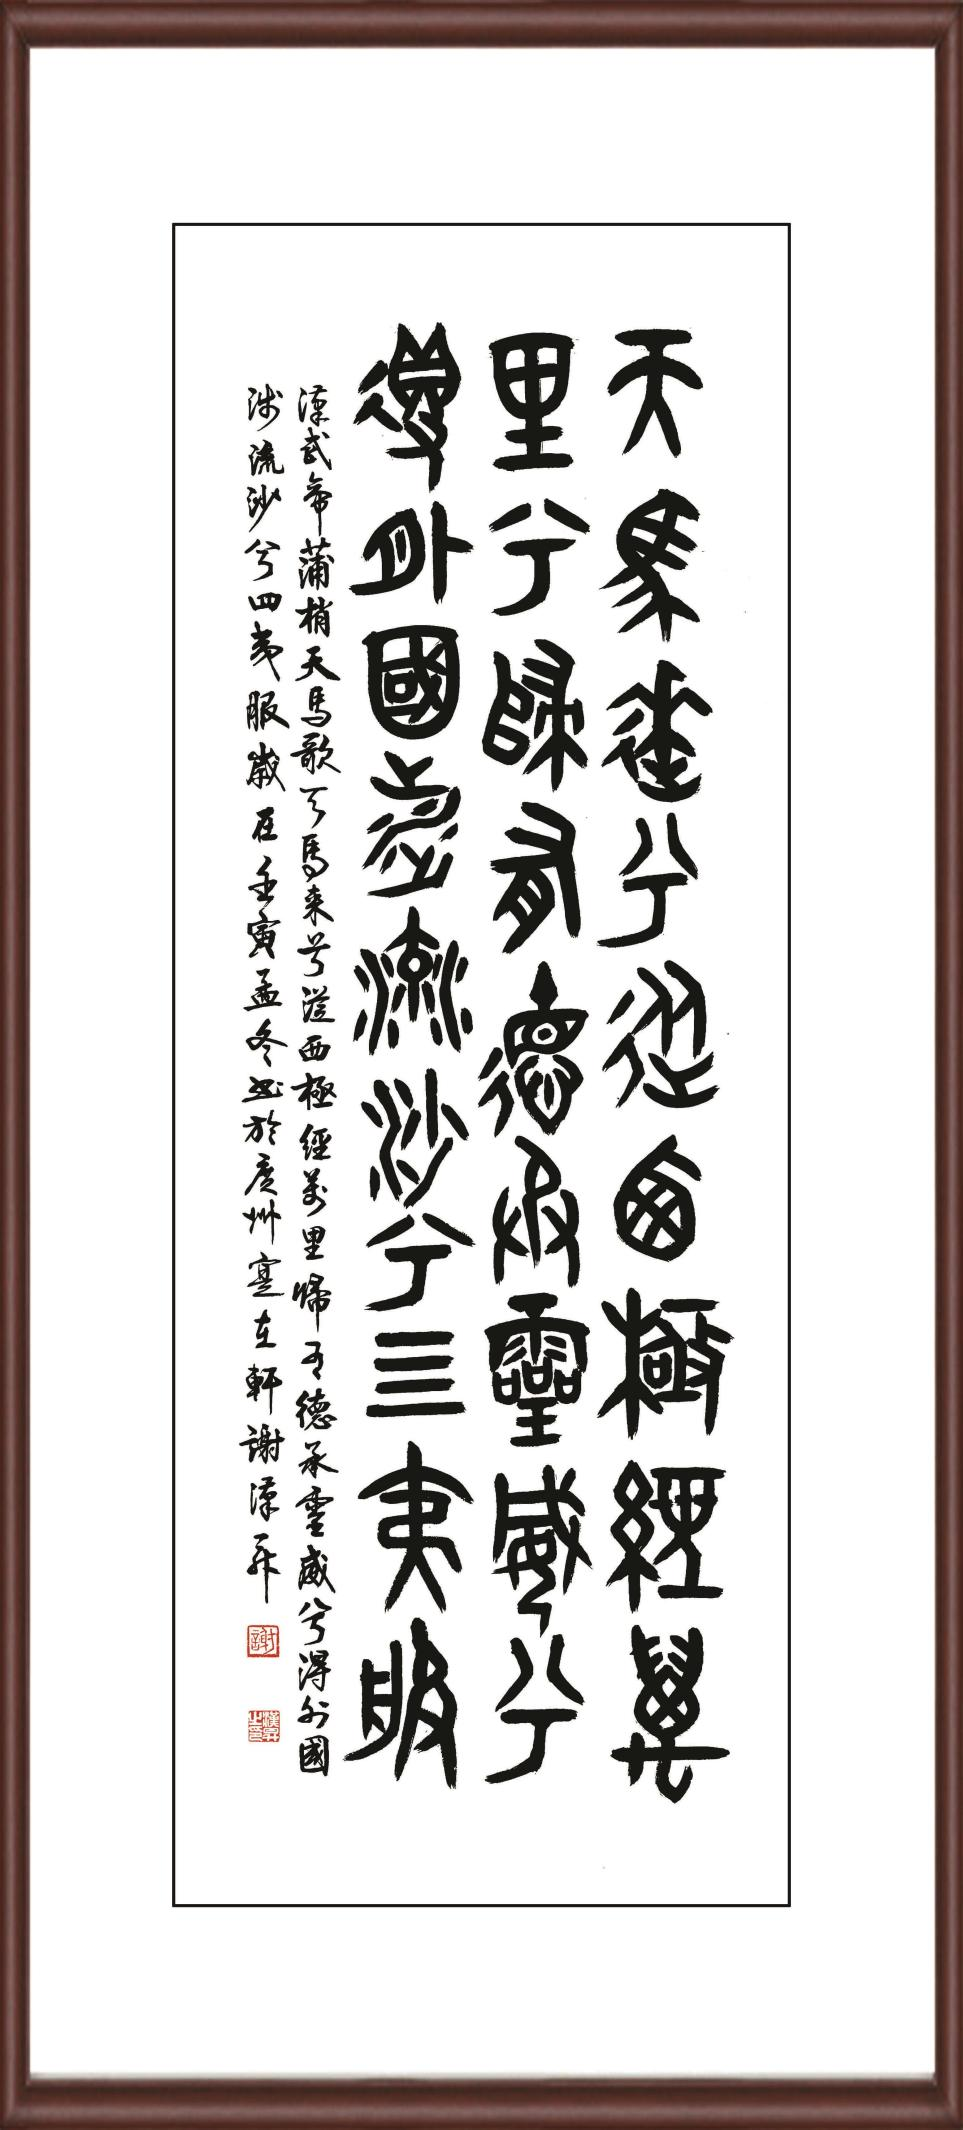 天馬來兮從西極經萬
里兮歸有德承靈威兮
得外國涉流沙兮亖夷服
漢武帝蒲梢天馬歌天馬来兮從西極經萬里歸有德承靈威兮得外國
涉流沙兮四夷服歲在壬寅孟冬书於廣州軒謝漢
謝